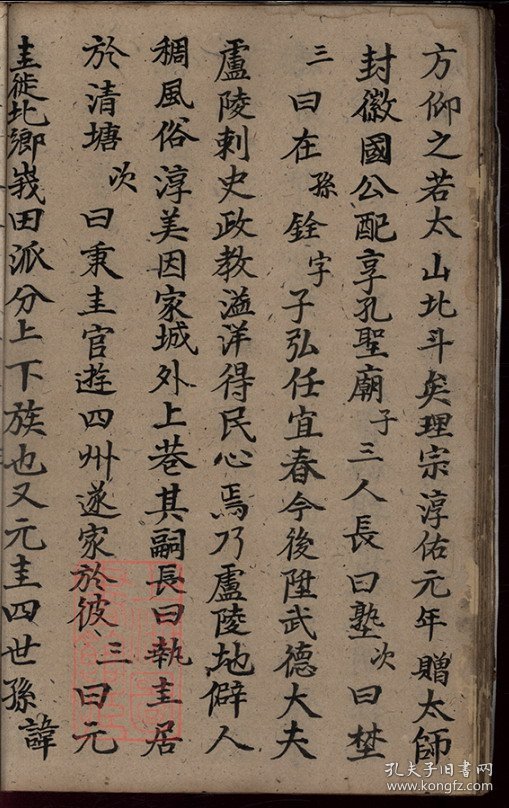 方仰之若太山北斗矣理宗淳佑元年贈太師
封徽國公配享孔聖廟子三人長曰塾次曰埜
三曰在孫銓字子弘任宜春令後陞武德大夫
盧陵刺史政教溢洋得民心焉乃盧陵地僻人
稠風俗淳美因家城外上巷其嗣長曰執圭居
於清塘次曰秉圭官遊四州遂家於彼三曰元
圭徙北鄉峩田派分上下族也又元圭四世孫諱
孔夫子旧书网
www.kongfz.com